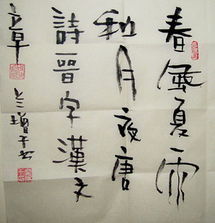 春風夏雨
秋月夜唐
詩晉字漢文
章